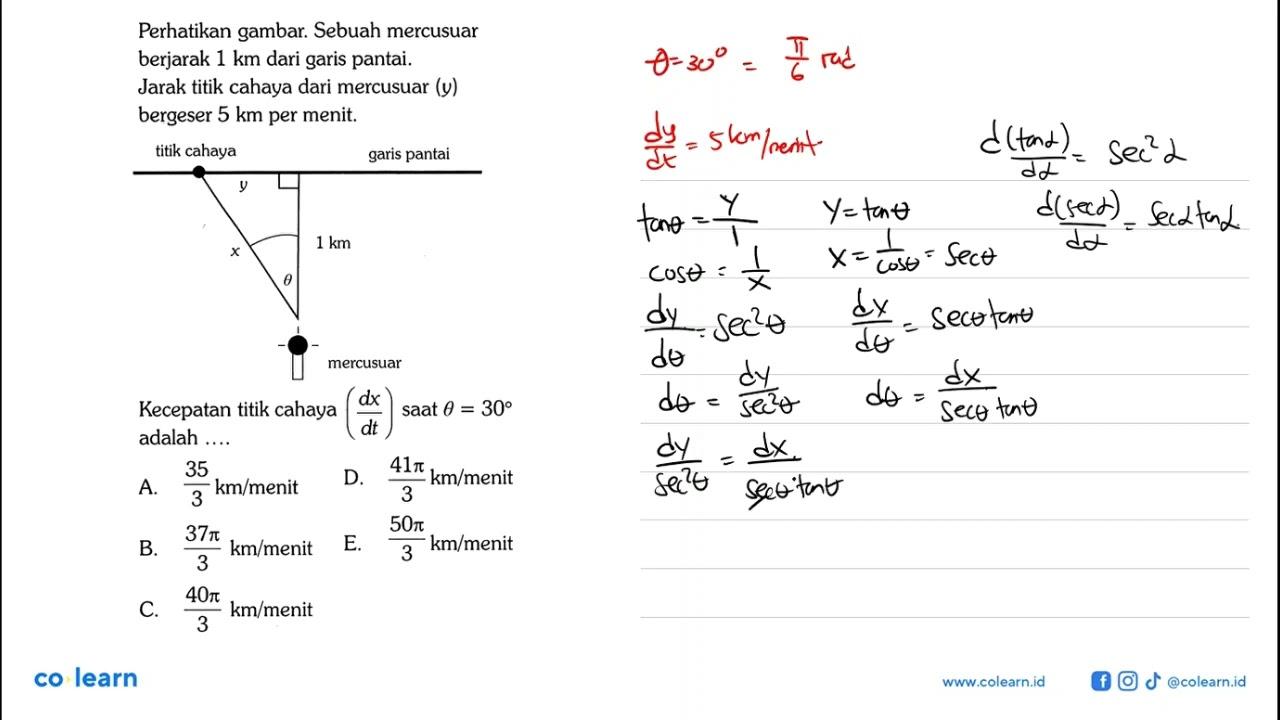 Perhatikan gambar. Sebuah mercusuar
berjarak 1 km dari garis pantai.
Jarak titik cahaya dari mercusuar (y)
bergeser 5 km per menit.
titik cahaya
garis pantai
y
x
1 km
θ
mercusuar
Kecepatan titik cahaya (dx/dt) saat θ = 30°
adalah ....
A. 35/3 km/menit
B. 37π/3 km/menit
C. 40π/3 km/menit
D. 41π/3 km/menit
E. 50π/3 km/menit
θ = 30° = π/6 rad
dy/dt = 5 km/menit
d(tanα)/dα = sec²α
d(secα)/dα = secα tanα
tanθ = y/1
y = tanθ
cosθ = 1/x
x = 1/cosθ = secθ
dy/dθ = sec²θ
dx/dθ = secθ tanθ
dθ = dy/sec²θ
dθ = dx/secθ tanθ
dy/sec²θ = dx/secθ·tanθ
co learn
www.colearn.id
@colearn.id